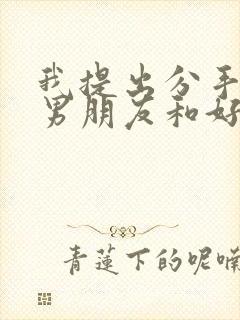 我提出分手
男朋友和好
青莲下的呢喃